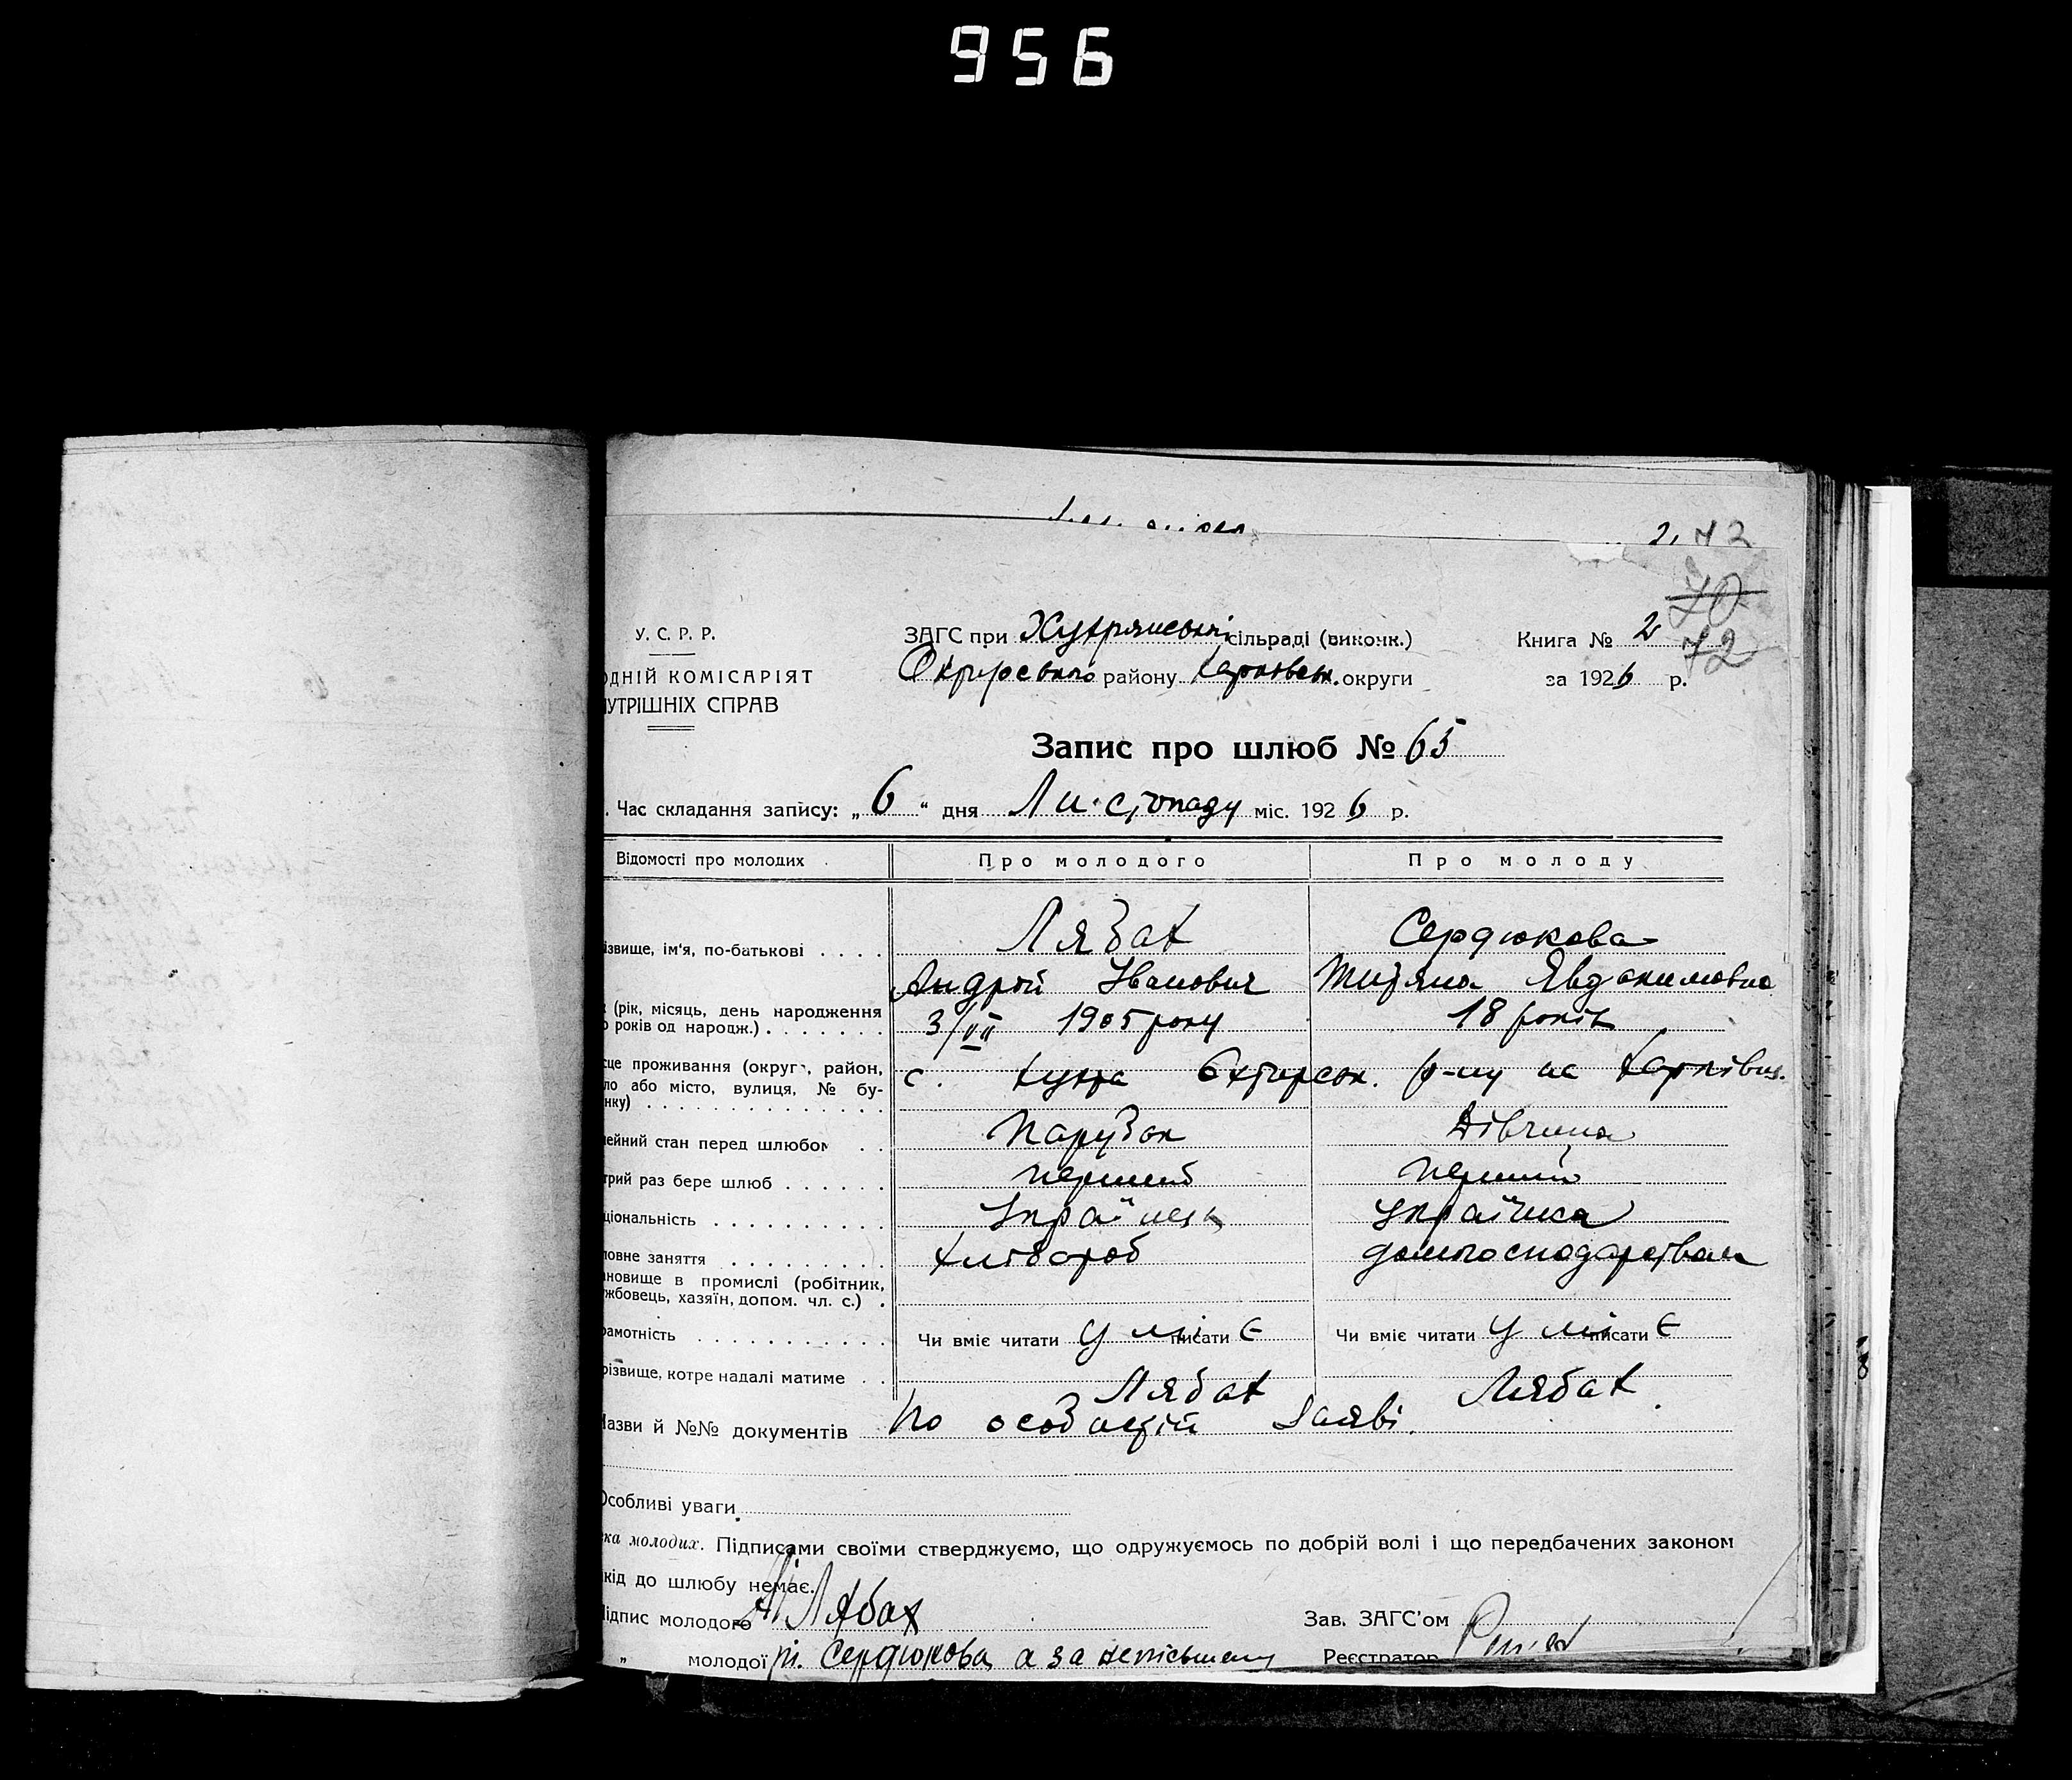 956
2, 72
70
72
У. С. Р. Р.
ОДНІЙ КОМІСАРІЯТ
УТРІШНІХ СПРАВ
ЗАГС при Хухрянській сільраді (виконк.)
Охтирського району Харківськ. округи
Книга № 2
за 1926 р.
Запис про шлюб № 65
. Час складання запису: „ 6 “ дня Листопаду міс. 1926 р.
Відомості про молодих Про молодого Про молоду
ізвище, ім'я, по-батькові . . . . Лябах Сердюкова
Андрій Іванович Титяна Явдокимовна
(рік, місяць, день народження
років од народж.) . . . . . . . 3/VII 1905 року 18 років
сце проживання (округ, район,
ло або місто, вулиця, № бу-
нку) . . . . . . . . . . . . . . .
с. Хухра Охтирськ. р-ну на Харківщ.
ейний стан перед шлюбом . . Парубок Дівчина
трий раз бере шлюб . . . . . . перший перший
ціональність . . . . . . . . . . Українець Українка
ловне заняття . . . . . . . . . Хлібороб домогосподарствам
новище в промислі (робітник,
жбовець, хазяїн, допом. чл. с.) .
рамотність . . . . . . . . . . . Чи вміє читати уміє писати Чи вміє читати уміє писати
різвище, котре надалі матиме . . Лябах Лябах
Назви й №№ документів По особистій заяві.
Особливі уваги
ка молодих. Підписами своїми стверджуємо, що одружуємось по добрій волі і що передбачених законом
кід до шлюбу немає.
Підпис молодого А Лябах Зав. ЗАГС'ом
„ молодої т. Сердюкова, а за неписьмену Реєстратор